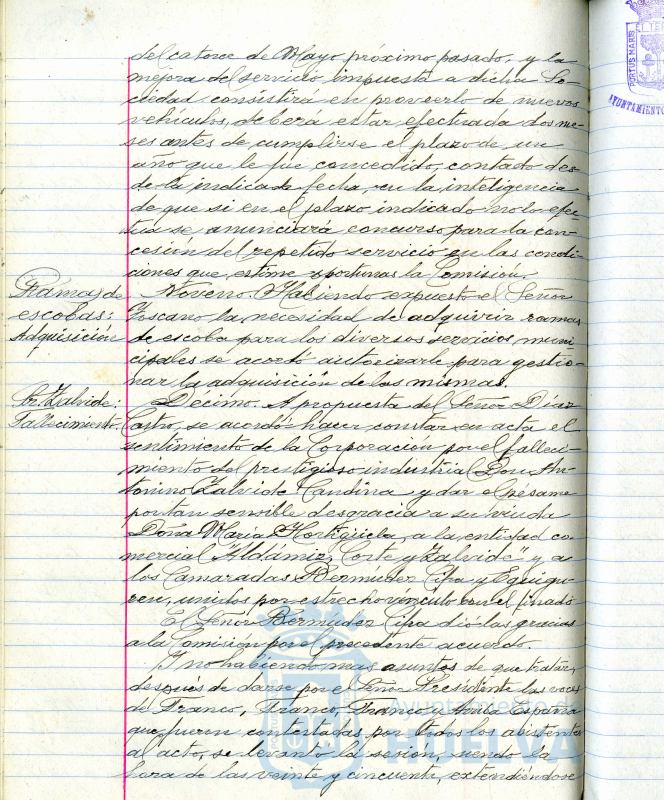 del catorce de Mayo próximo pasado, y la
mejora del servicio impuesta a dicha So-
ciedad consistirá en proveerlo de nuevos
vehículos, deberá estar efectuada dos me-
ses antes de cumplirse el plazo de un
año que le fue concedido, contado des-
de la indicada fecha, en la inteligencia
de que si en el plazo indicado no lo efec-
túa se anunciará concurso para la con-
cesión del repetido servicio en las condi-
ciones que estime oportunas la Comisión.
Ramas de
escobas:
Adquisición
Noveno. Habiendo expuesto el Señor
Toscano la necesidad de adquirir ramas
de escoba para los diversos servicios muni-
cipales se acordó autorizarle para gestio-
nar la adquisición de las mismas.
Sr. Zalvide:
Fallecimiento.
Décimo. A propuesta del Señor Díaz
Castro, se acordó hacer constar en acta el
sentimiento de la Corporación por el falleci-
miento del prestigioso industrial Don An-
tonino Zalvide Candina y dar el pésame
por tan sensible desgracia a su viuda
Doña María Hortigüela, a la entidad co-
mercial "Aldamiz, Corte y Zalvide" y a
los Camaradas Bermudez Cifa y Eguigu-
ren, unidos por estrecho vínculo con el finado
El Señor Bermudez Cifa dió las gracias
a la Comisión por el precedente acuerdo.
Y no habiendo mas asuntos de que tratar,
después de darse por el Señor Presidente las voces
de Franco, Franco, Franco y Arriba España
que fueron contestadas por todos los asistentes
al acto, se levantó la sesión, siendo la
hora de las veinte y cincuenta, extendiéndose
PORTUS MARIS ET TER
AYUNTAMIENTO
Ayuntamiento de
HUELVA